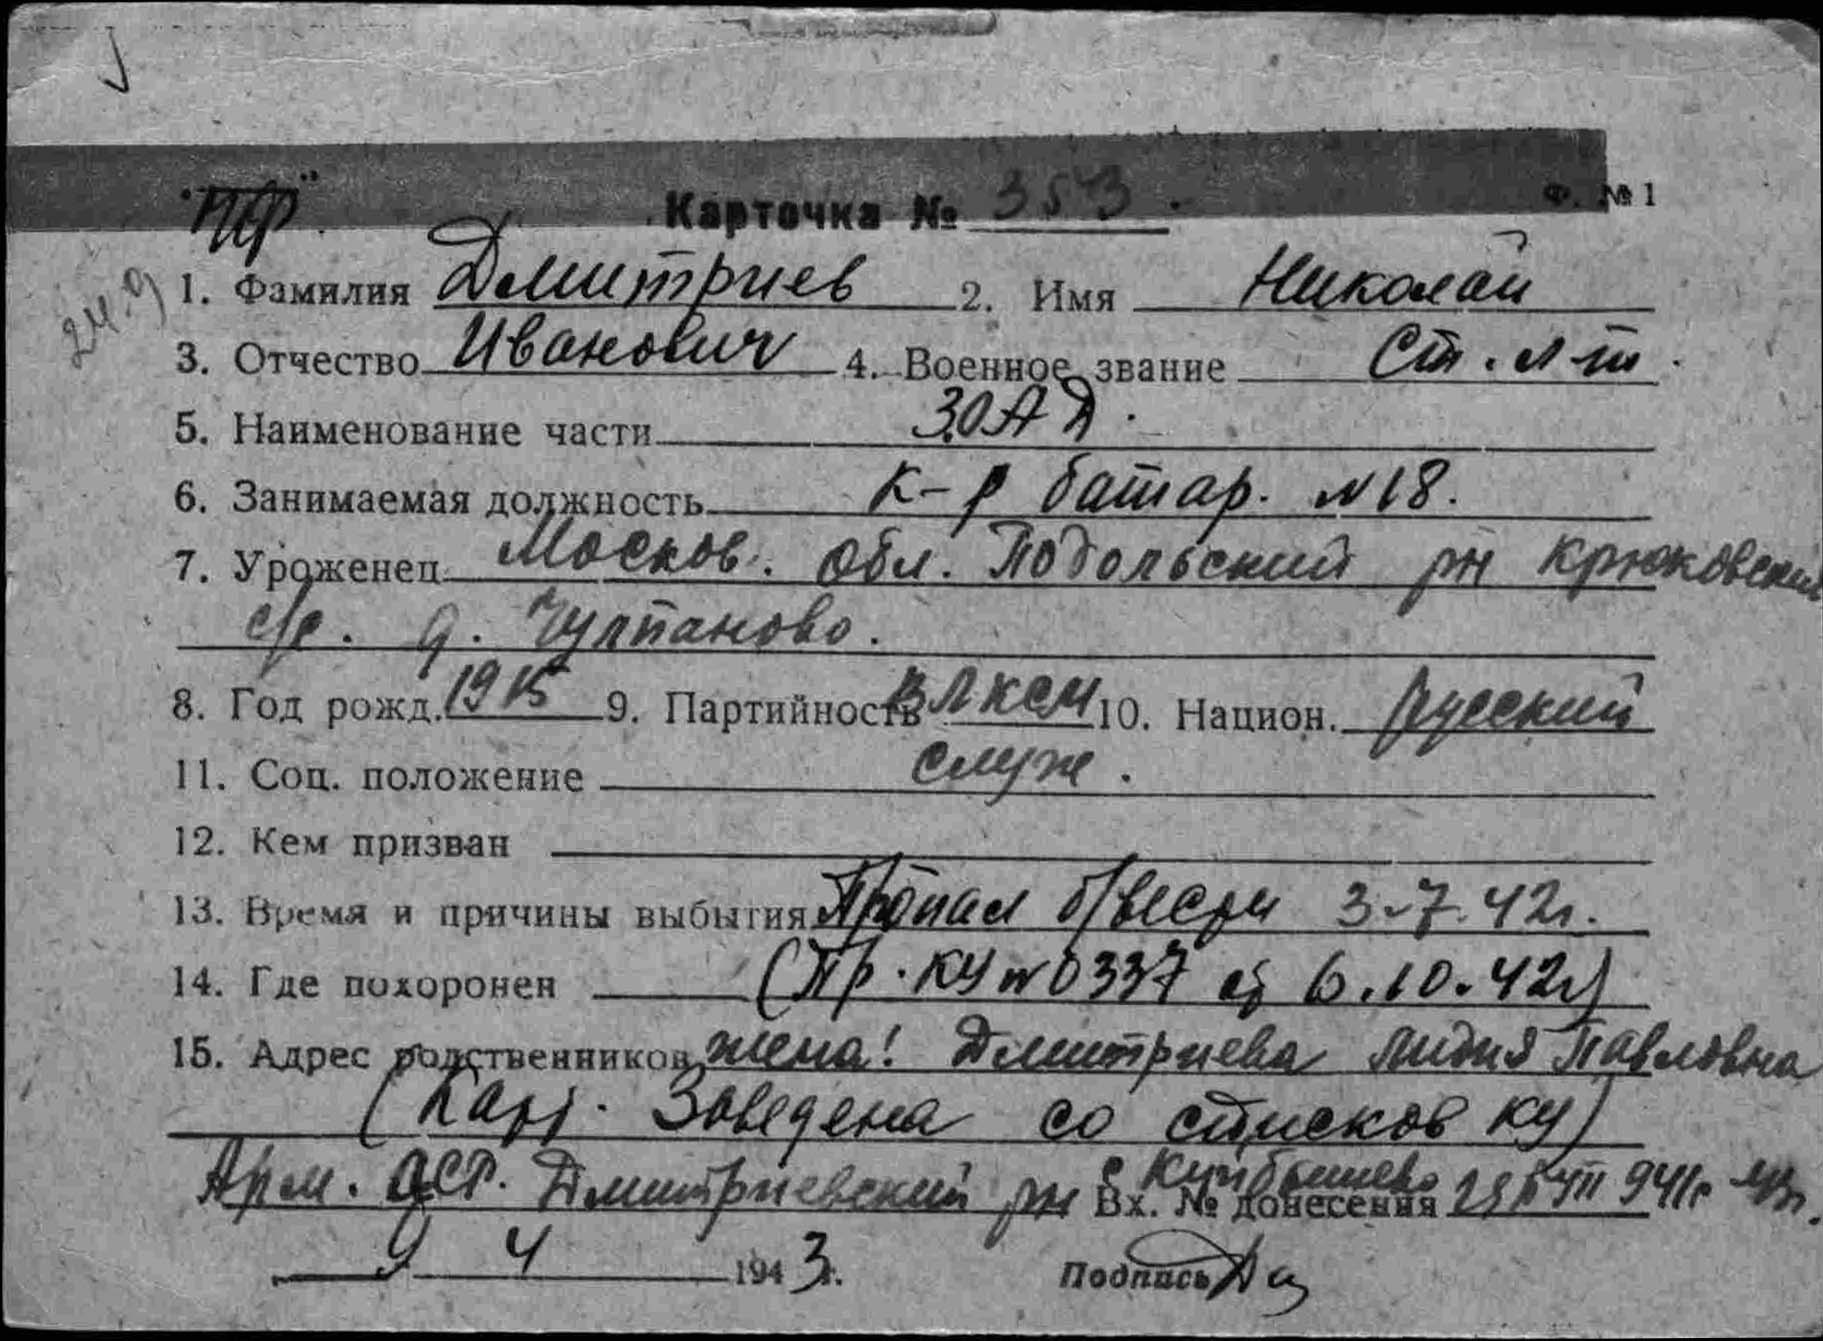 "ЧФ"
Карточка № 353. Ф. № 1
1. Фамилия Дмитриев 2. Имя Николай
3. Отчество Иванович 4. Военное звание Ст. л-т.
5. Наименование части ЗОАД.
6. Занимаемая должность К-р батар. №18.
7. Уроженец Москов. обл. Подольский рн Крюковский
с/с. д. Чулпаново.
8. Год рожд. 1915 9. Партийность ВЛКСМ 10. Национ. Русский
11. Соц. положение служ.
12. Кем призван
13. Время и причины выбытия Пропал б/вести 3-7.42г.
14. Где похоронен (Пр. КУ №0337 от 6.10.42г)
15. Адрес родственников жена: Дмитриева Лидия Павловна
(Карт. Заведена со списков КУ)
Арм. ССР. Дмитриевский рн с Куйбышево
Вх. № донесения
9 4 1943г. Подпись